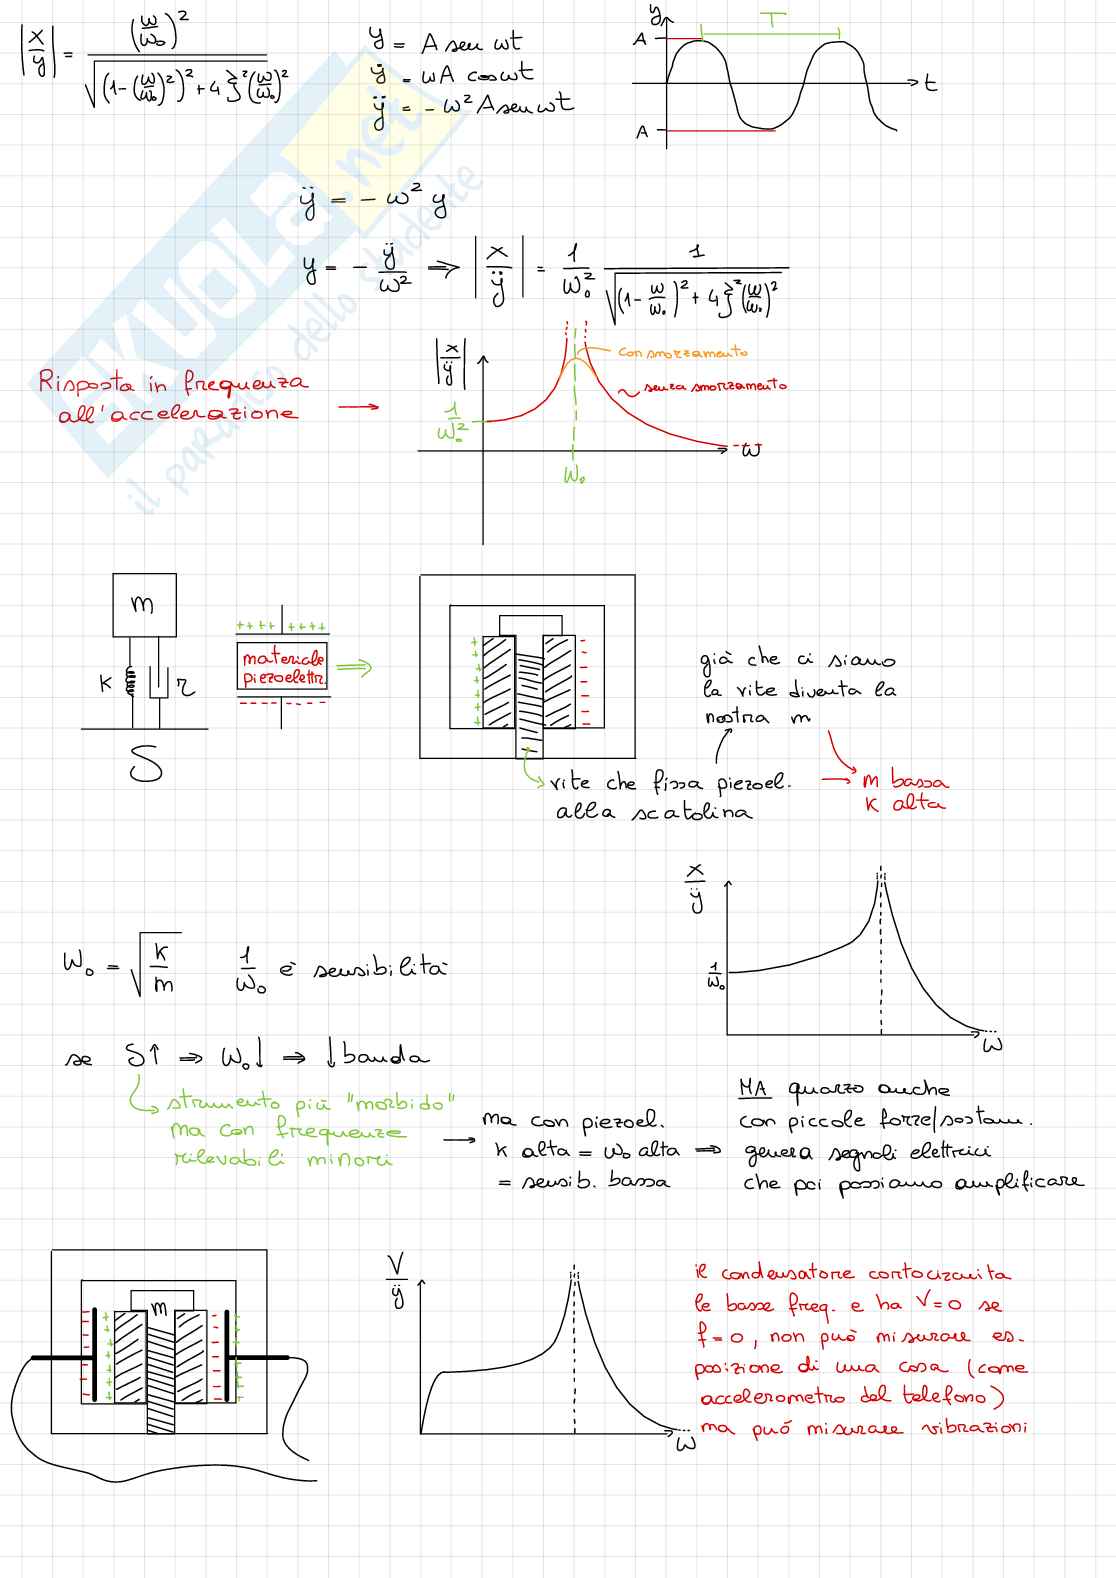 |x/y| = (ω/ω₀)² / √((1-(ω/ω₀)²)² + 4ξ²(ω/ω₀)²)
y = A sen ωt
ẏ = ωA cosωt
ÿ = -ω² A sen ωt
y
T
A
t
A
ÿ = -ω² y
y = - ÿ/ω² ⇒ |x/ÿ| = 1/ω₀² 1/√((1-ω/ω₀)² + 4ξ²(ω/ω₀)²)
SKUOLA.net
il paradiso dello studente
|x/ÿ|
con smorzamento
senza smorzamento
Risposta in frequenza
all'accelerazione
1/ω₀²
ω
ω₀
m
K
r
S
++++ ++++
materiale
piezoelettr.
già che ci siamo
la vite diventa la
nostra m
vite che fissa piezoel.
alla scatolina
m bassa
K alta
x/ÿ
1/ω₀
ω
ω₀ = √(K/m) 1/ω₀ è sensibilità
se S↑ ⇒ ω₀↓ ⇒ ↓banda
strumento più "morbido"
ma con frequenze
rilevabili minori
ma con piezoel.
K alta = ω₀ alta ⇒
= sensib. bassa
MA quarzo anche
con piccole forze/spostam.
genera segnali elettrici
che poi possiamo amplificare
m
V/ÿ
ω
il condensatore cortocircuita
le basse freq. e ha V=0 se
f=0, non può misurare es.
posizione di una cosa (come
accelerometro del telefono)
ma può misurare vibrazioni